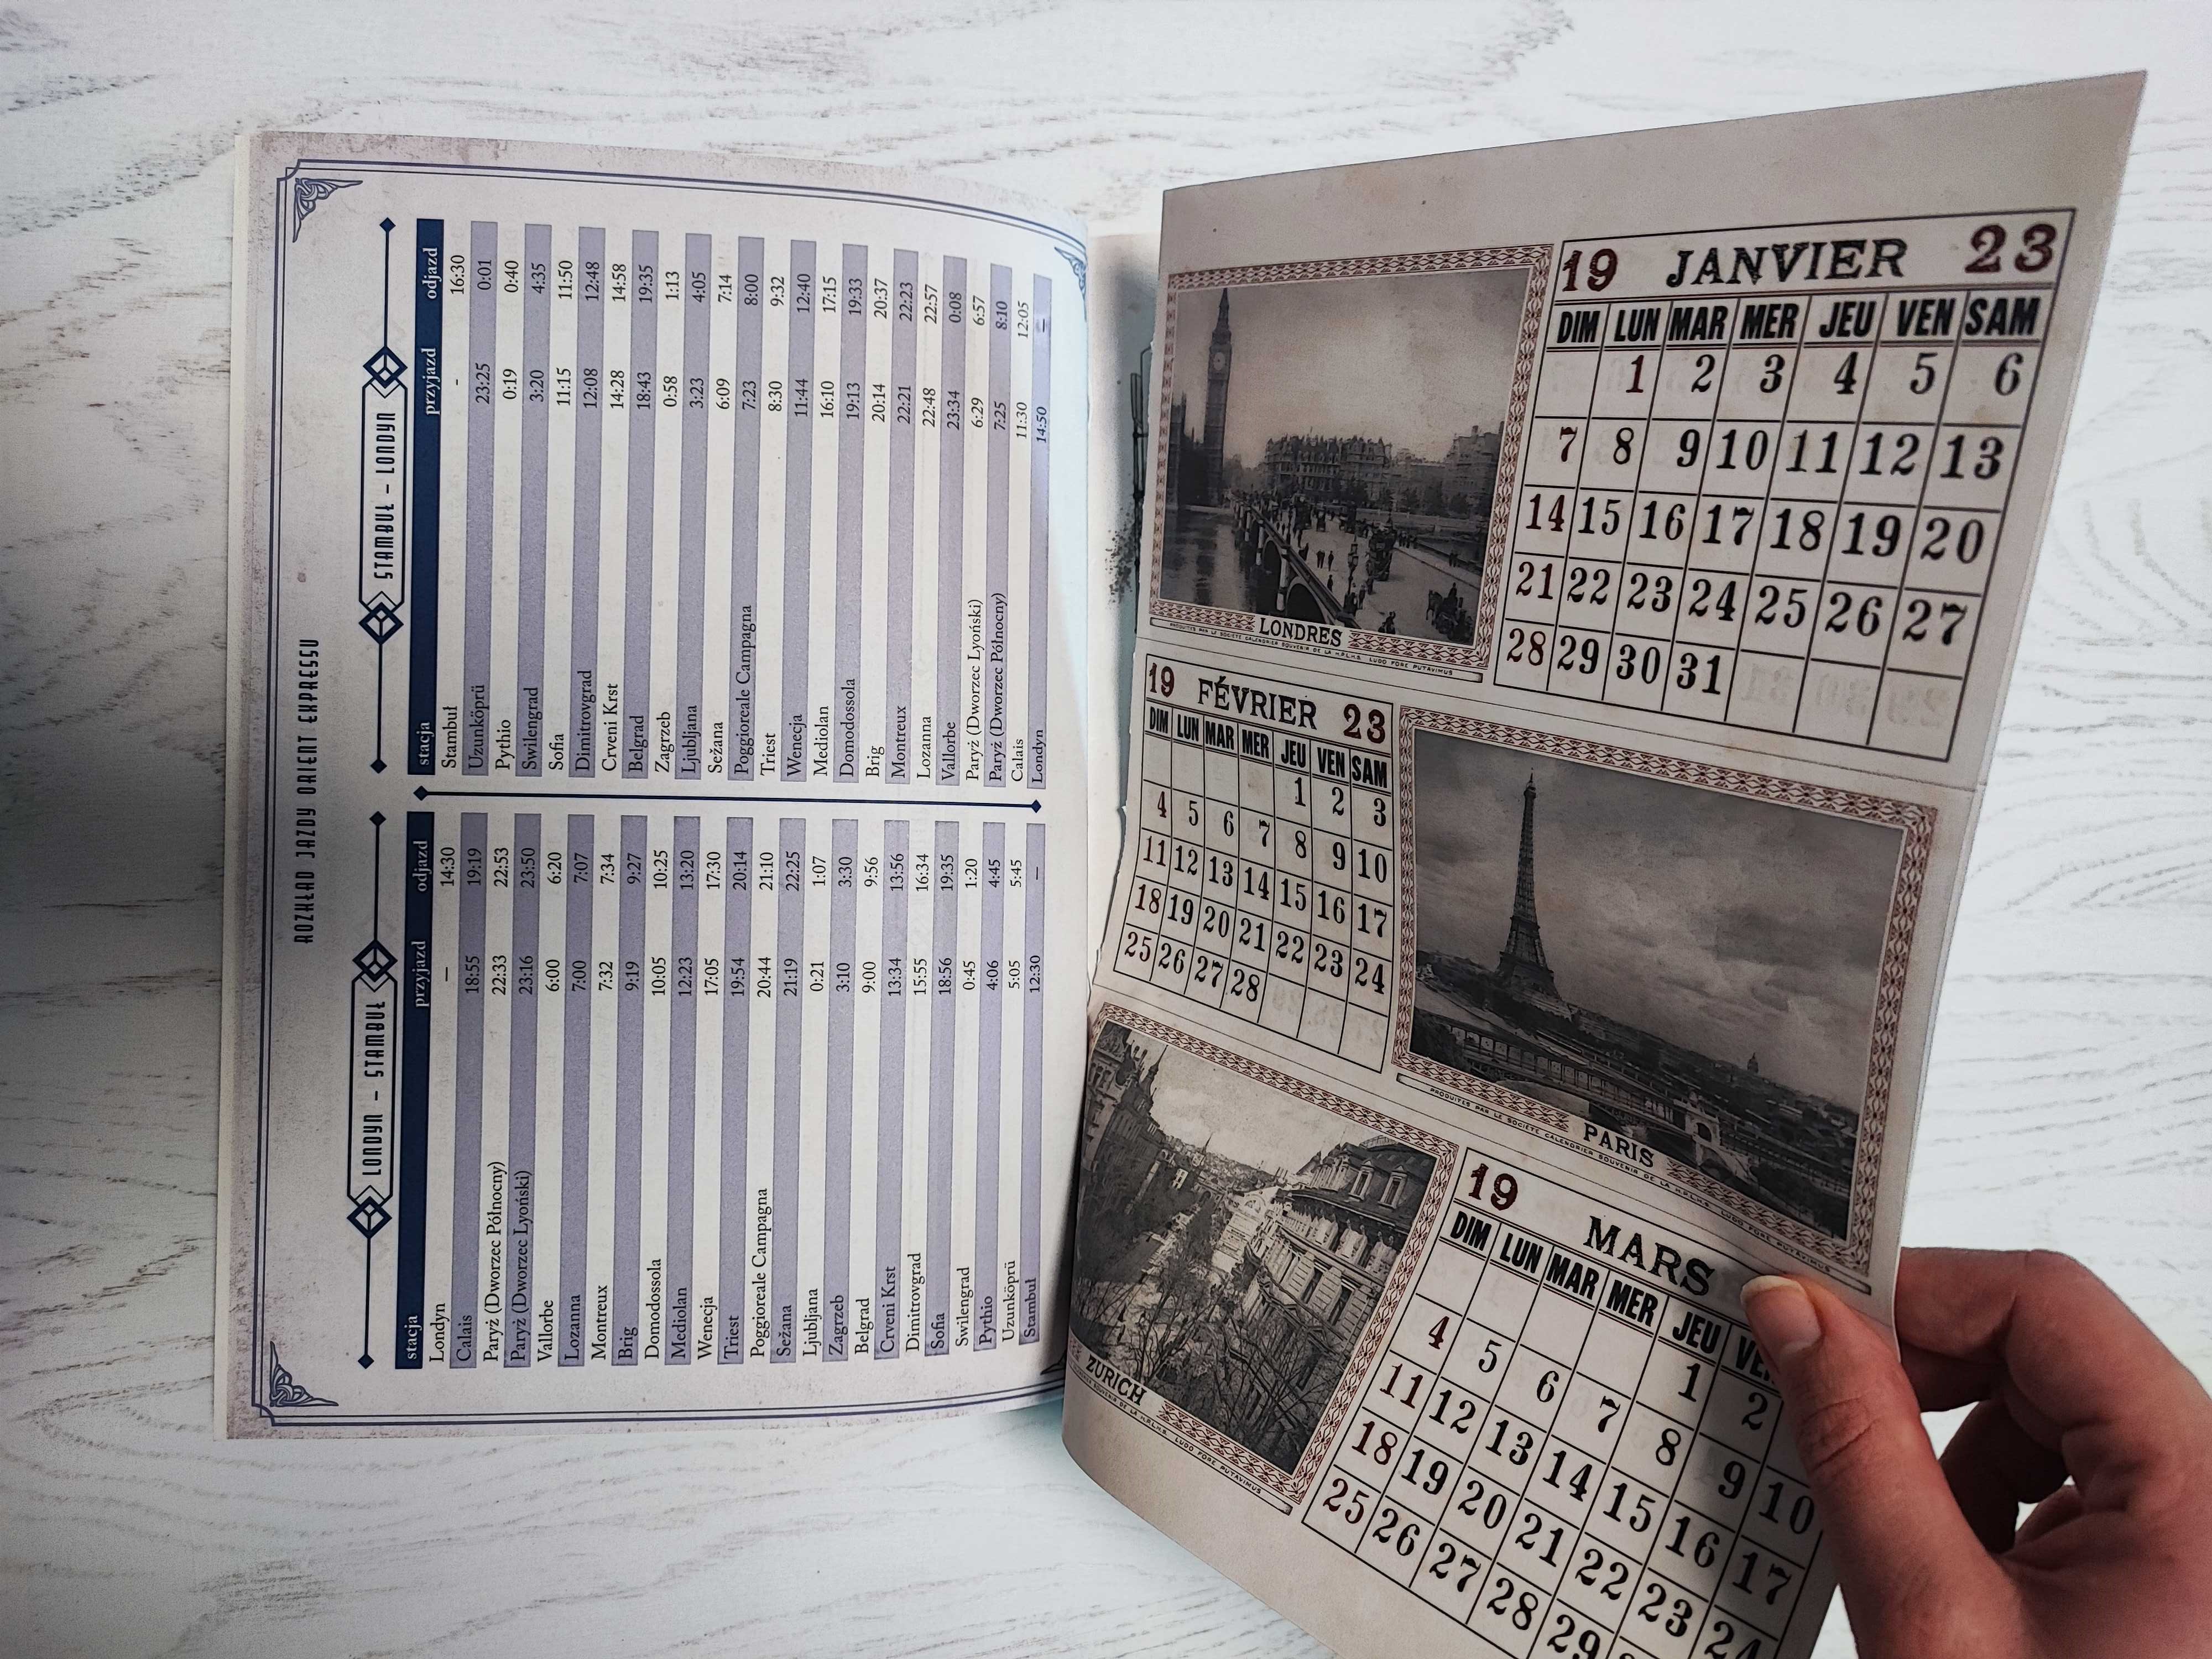 ROZKŁAD JAZDY ORIENT EXPRESSU
LONDYN – STAMBUŁ
stacja przyjazd odjazd
Londyn — 14:30
Calais 18:55 19:19
Paryż (Dworzec Północny) 22:33 22:53
Paryż (Dworzec Lyoński) 23:16 23:50
Vallorbe 6:00 6:20
Lozanna 7:00 7:07
Montreux 7:32 7:34
Brig 9:19 9:27
Domodossola 10:05 10:25
Mediolan 12:23 13:20
Wenecja 17:05 17:30
Triest 19:54 20:14
Poggioreale Campagna 20:44 21:10
Sežana 21:19 22:25
Ljubljana 0:21 1:07
Zagrzeb 3:10 3:30
Belgrad 9:00 9:56
Crveni Krst 13:34 13:56
Dimitrovgrad 15:55 16:34
Sofia 18:56 19:35
Swilengrad 0:45 1:20
Pythio 4:06 4:45
Uzunköprü 5:05 5:45
Stambuł 12:30 —
STAMBUŁ – LONDYN
stacja przyjazd odjazd
Stambuł - 16:30
Uzunköprü 23:25 0:01
Pythio 0:19 0:40
Swilengrad 3:20 4:35
Sofia 11:15 11:50
Dimitrovgrad 12:08 12:48
Crveni Krst 14:28 14:58
Belgrad 18:43 19:35
Zagrzeb 0:58 1:13
Ljubljana 3:23 4:05
Sežana 6:09 7:14
Poggioreale Campagna 7:23 8:00
Triest 8:30 9:32
Wenecja 11:44 12:40
Mediolan 16:10 17:15
Domodossola 19:13 19:33
Brig 20:14 20:37
Montreux 22:21 22:23
Lozanna 22:48 22:57
Vallorbe 23:34 0:08
Paryż (Dworzec Lyoński) 6:29 6:57
Paryż (Dworzec Północny) 7:25 8:10
Calais 11:30 12:05
Londyn 14:50 —
19 JANVIER 23
DIM LUN MAR MER JEU VEN SAM
1 2 3 4 5 6
7 8 9 10 11 12 13
14 15 16 17 18 19 20
21 22 23 24 25 26 27
28 29 30 31
LONDRES
PRODUITES PAR LE SOCIÉTÉ CALENDRIER SOUVENIR DE LA H.P.L.H.S. LUDO FORE PUTAVIMUS
19 FÉVRIER 23
DIM LUN MAR MER JEU VEN SAM
1 2 3
4 5 6 7 8 9 10
11 12 13 14 15 16 17
18 19 20 21 22 23 24
25 26 27 28
PARIS
PRODUITES PAR LE SOCIÉTÉ CALENDRIER SOUVENIR DE LA H.P.L.H.S. LUDO FORE PUTAVIMUS
19 MARS
DIM LUN MAR MER JEU
1 2
4 5 6 7 8 9 10
11 12 13 14 15 16 17
18 19 20 21 22 23 24
25 26 27 28 29
ZURICH
SOUVENIR DE LA H.P.L.H.S. LUDO FORE PUTAVIMUS